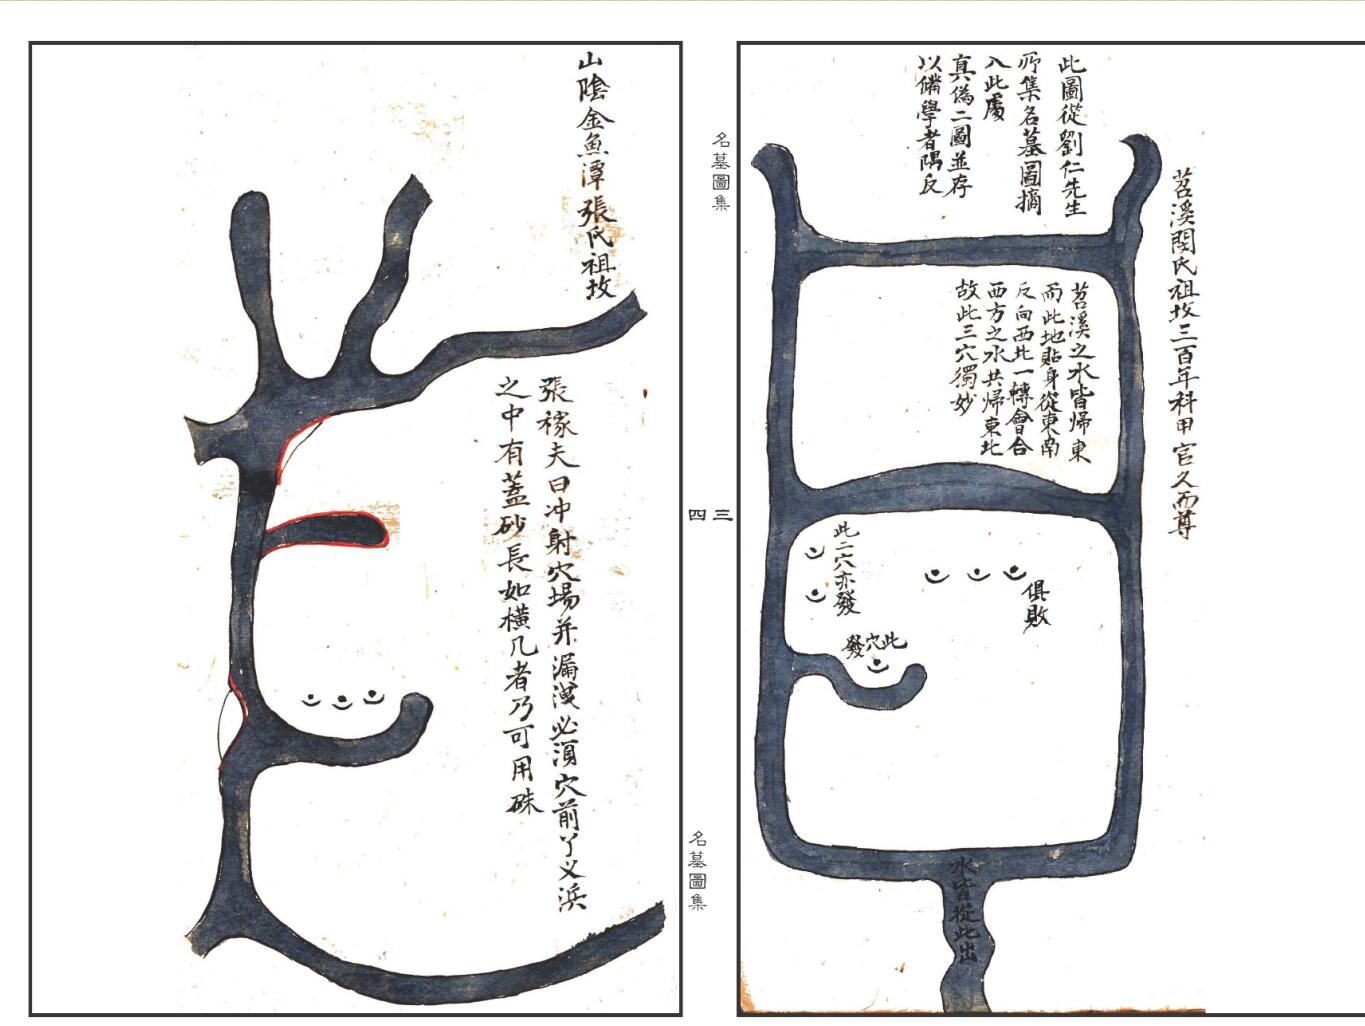 苕溪閔氏祖坟三百年科甲官久而尊
此圖從劉仁先生
所集名墓圖摘
入此處
真偽二圖並存
以備學者隅反
苕溪之水皆歸東
而此地貼身從東南
反向西北一轉會合
西方之水共歸東北
故此三穴獨妙
此二穴亦發
俱敗
此穴發
水皆從此出
名墓圖集
三
四
名墓圖集
山陰金魚潭張氏祖坟
張稼夫曰冲射穴場并漏洩必須穴前丫义浜
之中有蓋砂長如橫几者乃可用硃